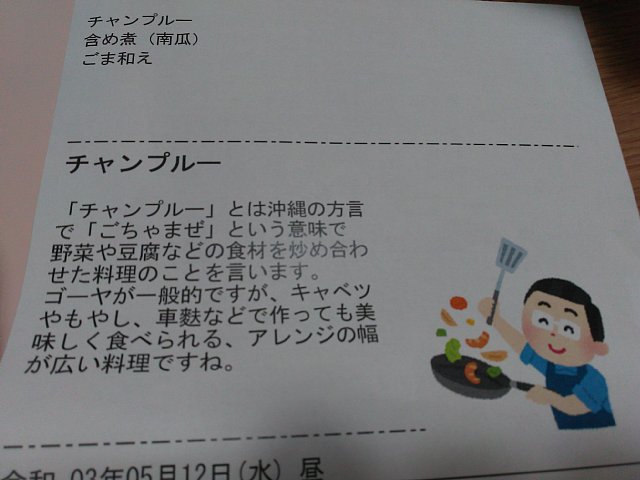 チャンプルー
含め煮（南瓜）
ごま和え
チャンプルー
「チャンプルー」とは沖縄の方言
で「ごちゃまぜ」という意味で
野菜や豆腐などの食材を炒め合わ
せた料理のことを言います。
ゴーヤが一般的ですが、キャベツ
やもやし、車麩などで作っても美
味しく食べられる、アレンジの幅
が広い料理ですね。
令和 03年05月12日(水) 昼